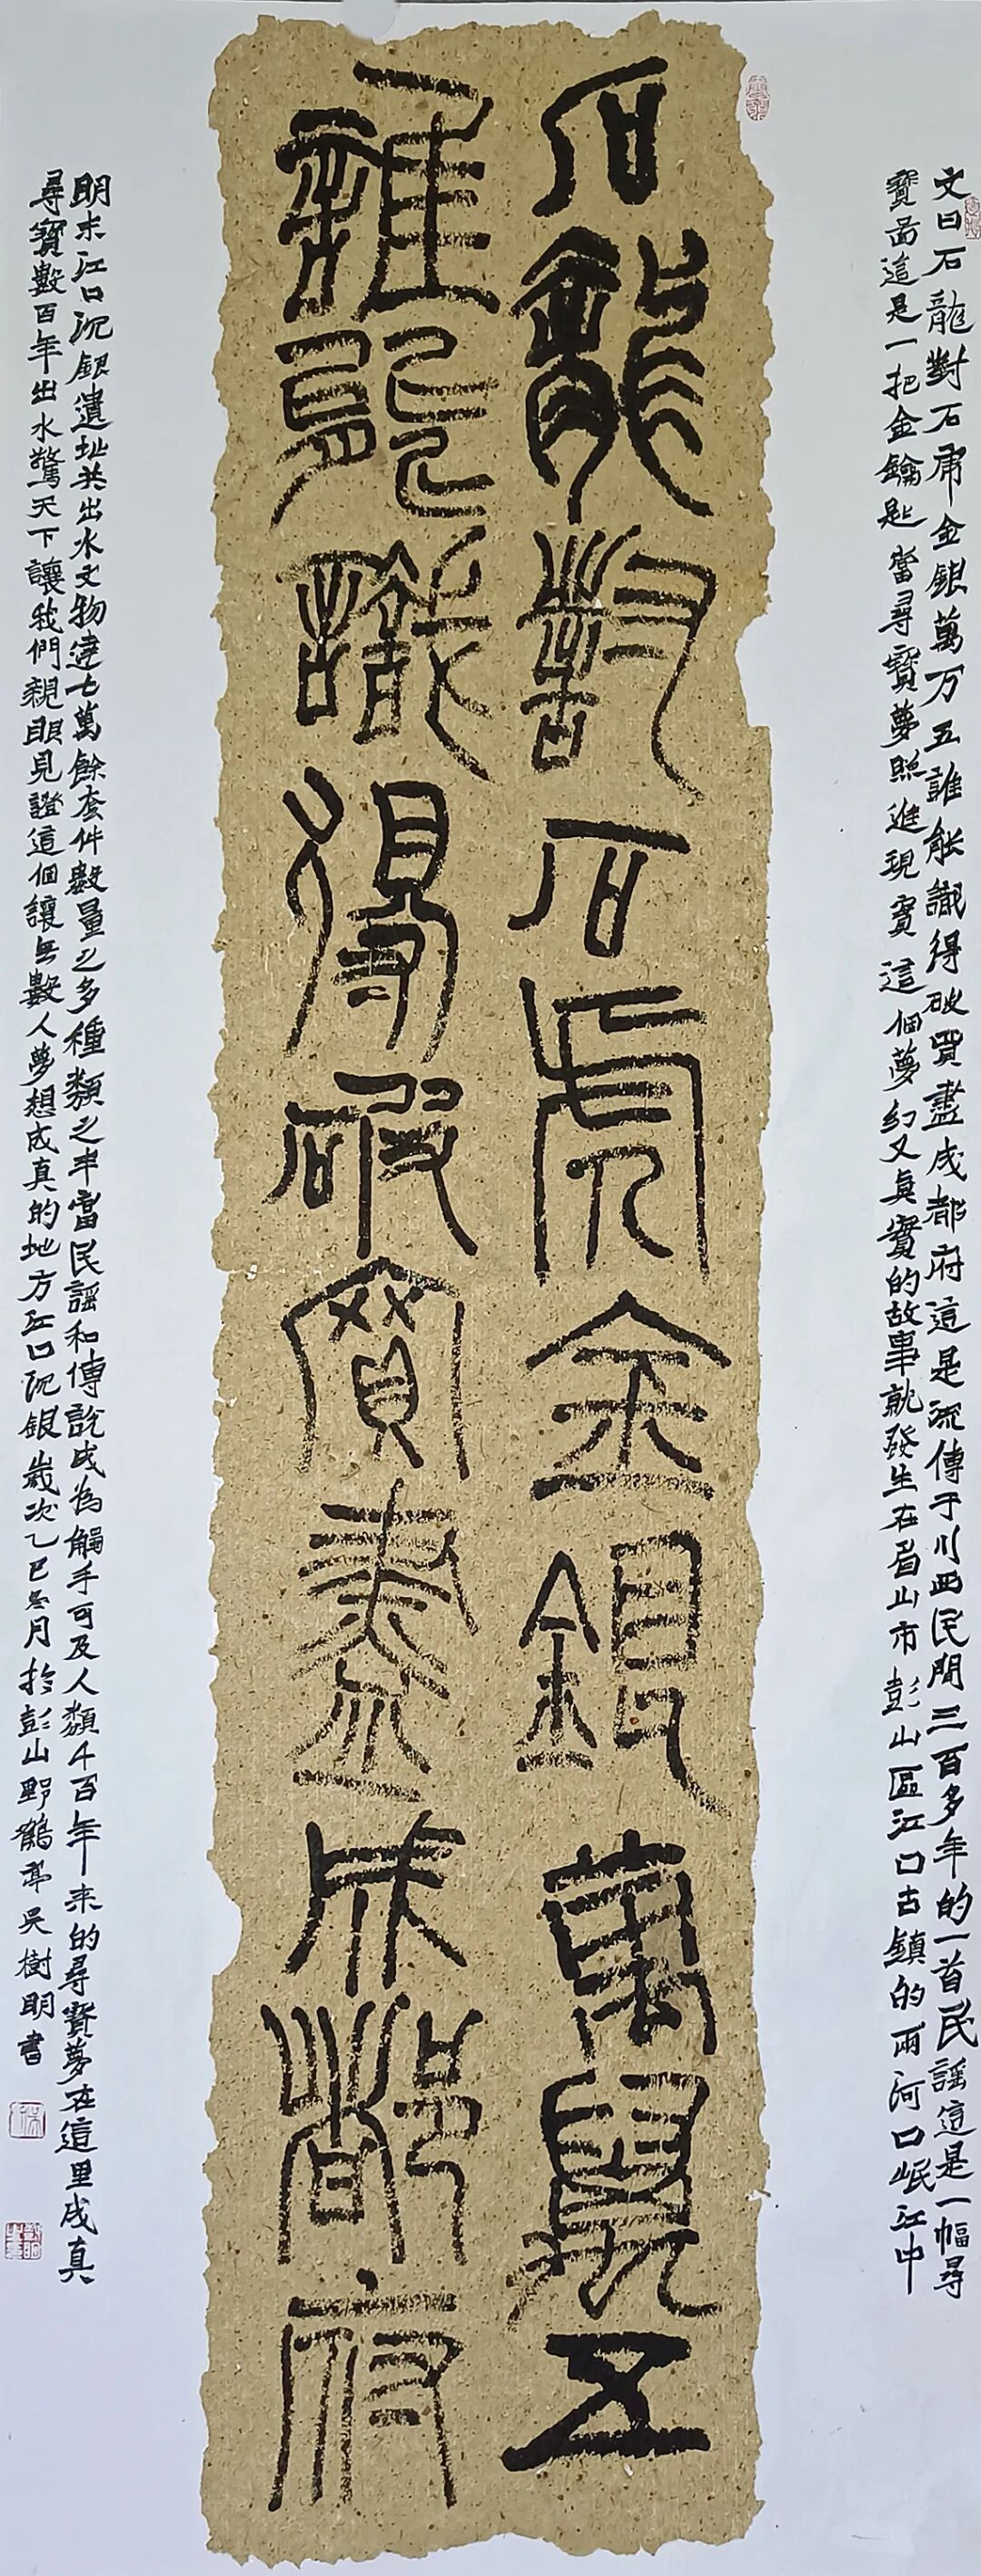 石龍對石虎金銀萬萬五
誰能識得破買盡成都府
文曰石龍對石虎金銀萬万五誰能識得破買盡成都府這是流傳于川西民間三百多年的一首民謡這是一幅尋
寶圖這是一把金鑰匙當尋寶夢照進現實這個夢幻又真實的故事就發生在眉山市彭山區江口古鎮的兩河口岷江中
明末江口沉銀遺址共出水文物達七萬餘套件數量之多種類之丰當民謡和傳説成為觸手可及人類千百年来的尋寶夢在這里成真
尋寶數百年出水驚天下讓我們親眼見證這個讓無數人夢想成真的地方江口沉銀歲次乙巳冬月於彭山野鶴亭吴樹明書